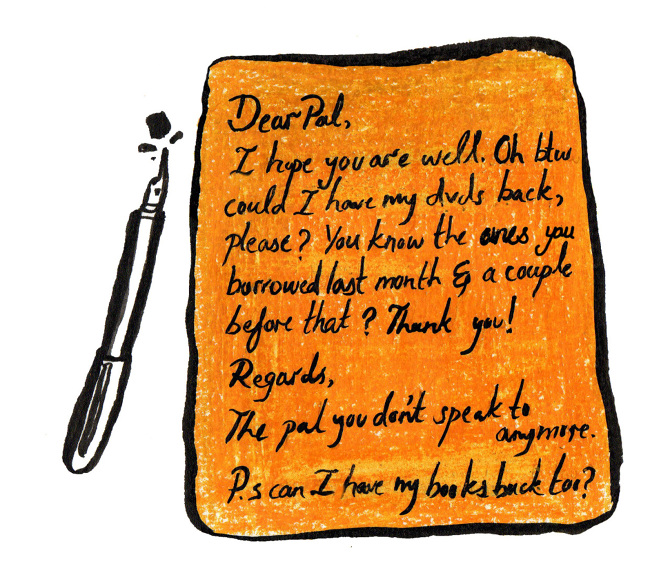 Dear Pal,
I hope you are well. Oh btw
could I have my dvds back,
please? You know the ones you
borrowed last month & a couple
before that? Thank you!
Regards,
The pal you don't speak to
anymore.
P.s can I have my books back too?